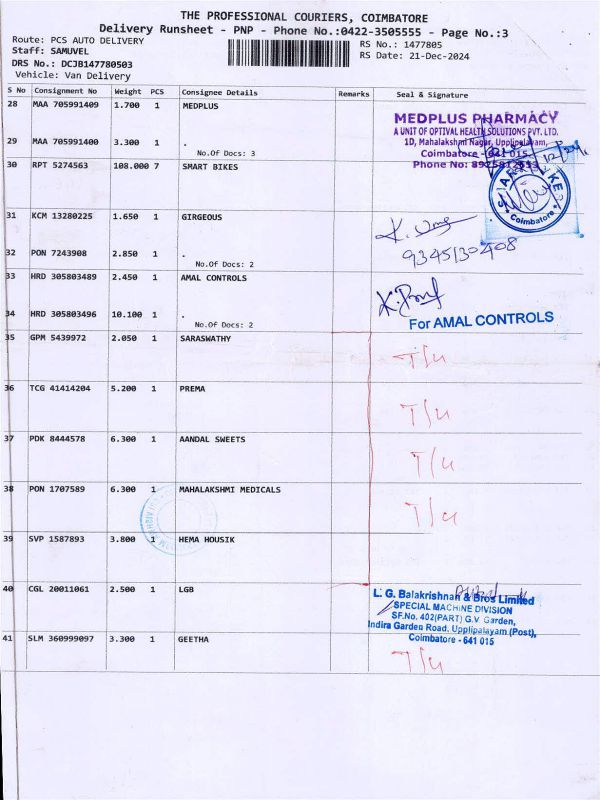 THE PROFESSIONAL COURIERS, COIMBATORE
Delivery Runsheet - PNP - Phone No.:0422-3505555 - Page No.:3
Route: PCS AUTO DELIVERY
Staff: SAMUVEL
DRS No: DCJB147780503
Vehicle: Van Delivery
RS No.: 1477805
RS Date: 21-Dec-2024
S No Consignment No Weight PCS Consignee Details Remarks Seal & Signature
28 MAA 705991409 1.700 1 MEDPLUS
MEDPLUS PHARMACY
A UNIT OF OPTIVAL HEALTH SOLUTIONS PVT. LTD.
1D, Mahalakshmi Nagar, Upplipalayam,
Coimbatore - 641 015
Phone No:
29 MAA 705991400 3.300 1 .
No.Of Docs: 3
30 RPT 5274563 108.000 7 SMART BIKES
Coimbatore
31 KCM 13280225 1.650 1 GIRGEOUS
9345130408
32 PON 7243908 2.850 1 .
No.Of Docs: 2
33 HRD 305803489 2.450 1 AMAL CONTROLS
34 HRD 305803496 10.100 1 .
No.Of Docs: 2
For AMAL CONTROLS
35 GPM 5439972 2.050 1 SARASWATHY
T/u
36 TCG 41414204 5.200 1 PREMA
T/u
37 PDK 8444578 6.300 1 AANDAL SWEETS
T/u
38 PON 1707589 6.300 1 MAHALAKSHMI MEDICALS
T/u
39 SVP 1587893 3.800 1 HEMA HOUSIK
40 CGL 20011061 2.500 1 LGB
L. G. Balakrishnan & Bros Limited
SPECIAL MACHINE DIVISION
SF.No. 402(PART) G.V. Garden,
Indira Garden Road, Upplipalayam (Post),
Coimbatore - 641 015
41 SLM 360999097 3.300 1 GEETHA
T/u